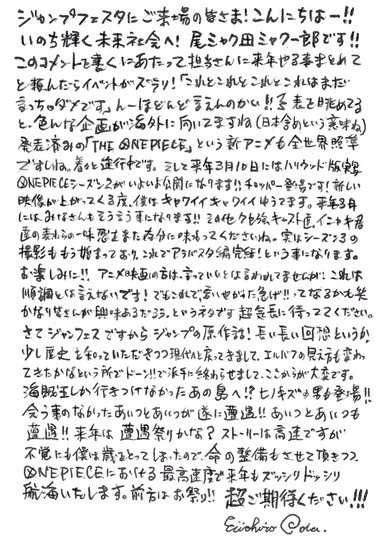 ジャンプフェスタにご来場の皆さま!こんにちはー!!
いのち輝く未来社会へ! 尾ミャク田ミャク一郎です!!
このコメントを書くにあたって担当さんに来年やる事まとめて
と頼んだらイベントがズラリ!「これとこれとこれとこれはまだ
言っちゃダメです」んーほとんど言えんのかい!! 予表を眺めてる
と、色んな企画が海外に向いてますね(日本含めという意味ね)
発表済みの「THE ONE PIECE」という新アニメも全世界照準
ですしね。着々と進行中です。そして来年3月10日にはハリウッド版実写
ONE PIECEシーズン2がいよいよ公開になります!!チョッパー登場です!新しい
映像が上がってくる度、僕はキャワイイキャワイイゆうてます。来年3月
にはみなさんもそう言う事になります!!この仕〜クも強キャスト達、イニャキ君
達の麦わらの一味感もまた存分に味わってくださいね。実はシーズン3の
撮影ももう始まっており、これでアラバスタ編完結!という事になります。
お楽しみに!! アニメ映画の方は、言っていいとは言われてませんが、これは
順調とは言えないです!でもこれしで言いやがった急げ!!ってなるかも笑
かなり皆さんが興味あるだろう、というネタです 超気長に待っててください。
さてジャンフェスですからジャンプの原作話!長い長い回想というか
少し歴史を知っていただきつつ現代に戻ってきまして、エルバフの見え方も変わっ
てきたかなという所でドーン!!で派手に終わらせまして、ここからが大変です。
海賊王しか行きつけなかったあの島へ!?ヒノキズの男も登場!!
会う事のなかったあいつとあいつが遂に遭遇!!あいつとあいつも
遭遇!!来年は 遭遇祭りかな? ストーリーは高速ですが
不覚にも僕は歳をとってしまったので、命の整備もさせて頂きつつ、
ONE PIECEにおける 最高速度で来年もズッシリドッシリ
航海いたします。前方はお祭り!! 超ご期待ください!!!
Eiichiro Oda.